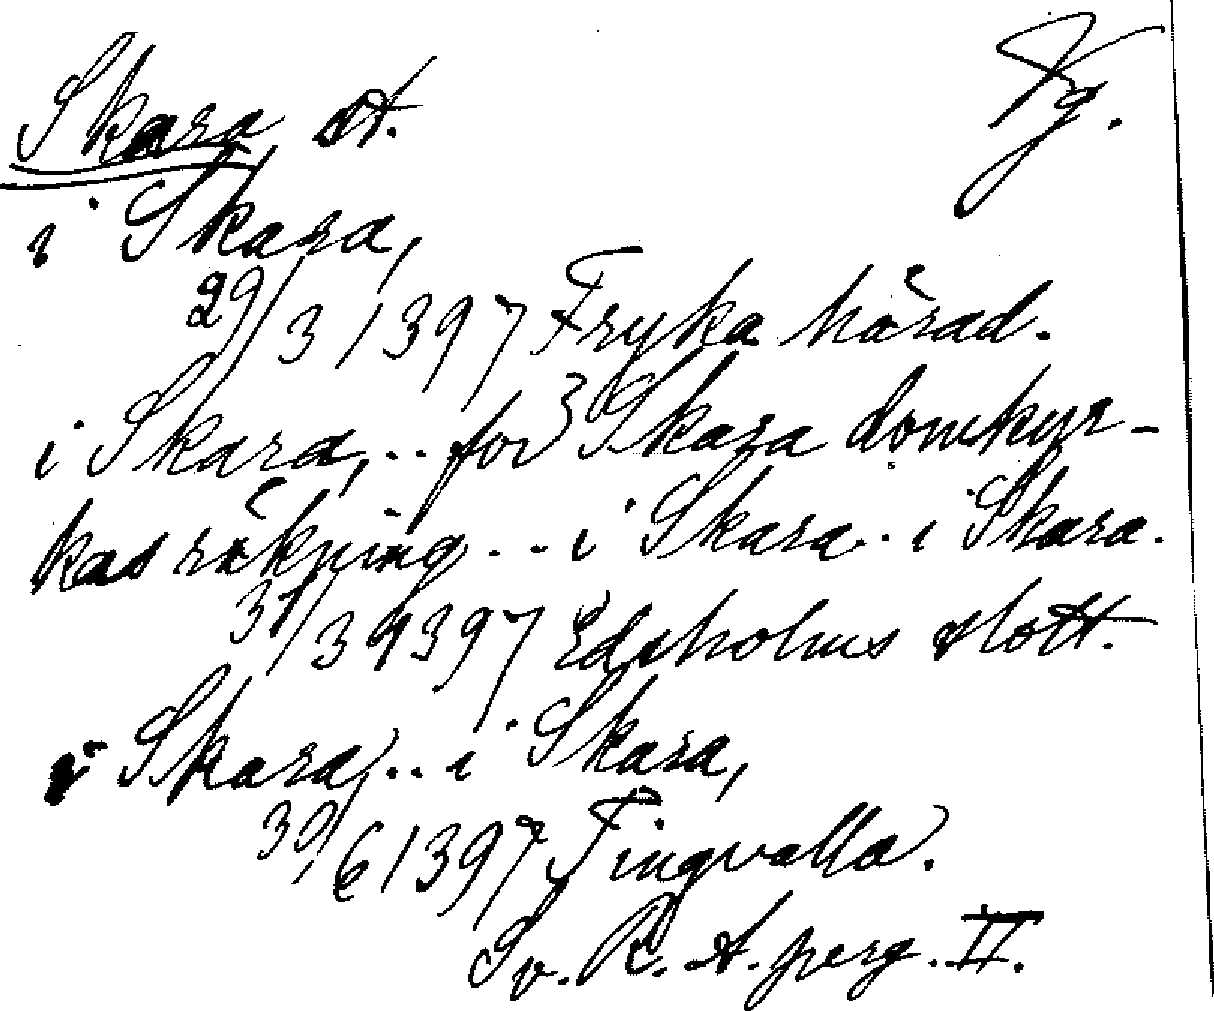 Skara st. Vg.
i Skara,
29/3 1397 Fryka härad.
i Skara, .. for Skara domkyr-
kas räkning... i Skara.. i Skara.
31/3 1397 Edsholms slott.
i Skara, .. i Skara,
30/6 1397 Tingvalla.
Sv. R. A. perg. II.